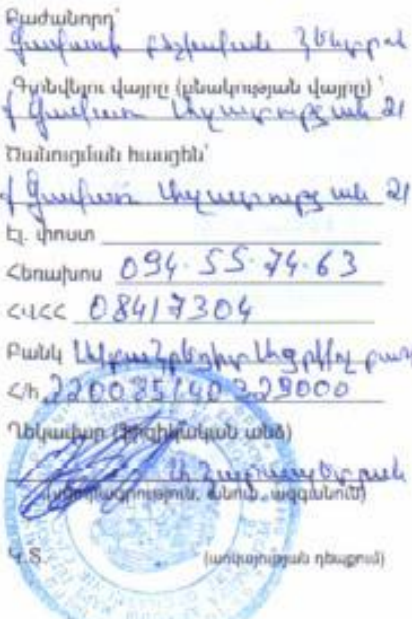 Բաժանորդ՝
Գավառի բժշկական կենտրոն
Գտնվելու վայրը (բնակության վայրը)՝
ք Գավառ Ազատության 21
Ծանուցման հասցեն՝
ք Գավառ Ազատության 21
Էլ. փոստ
Հեռախոս 094-55-74-63
ՀՎՀՀ 08417304
Բանկ
Հ/հ 220085140329000
Ղեկավար (ֆիզիկական անձ)
(ստորագրություն, անուն, ազգանուն)
Կ.Տ. (առկայության դեպքում)